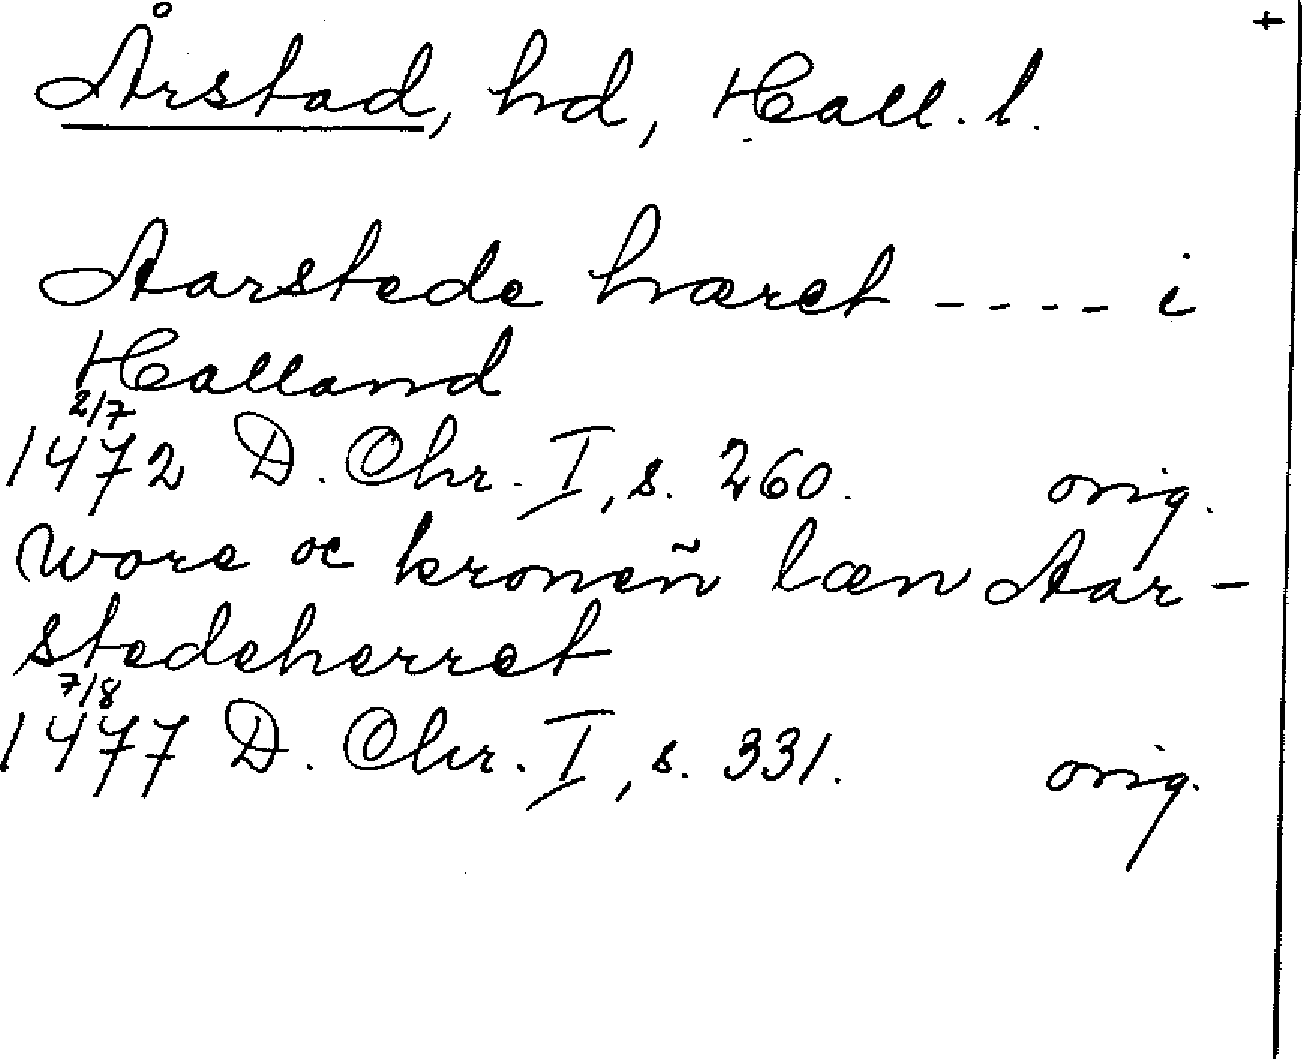 Årstad, hd, Hall. l.
Aarstede hæret ---- i
Halland
2/7
1472 D. Chr. I, s. 260. orig.
wore oc kroneñ læn Aar-
stedeherret
7/8
1477 D. Chr. I, s. 331. orig.